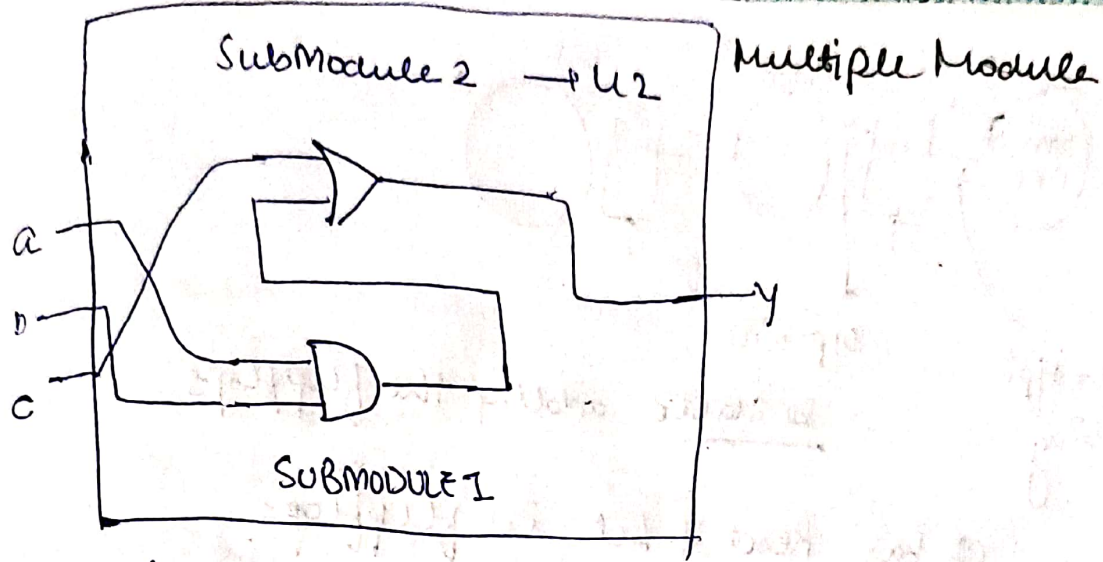 SubModule 2 → U2
Multiple Module
a
b
c
y
SUBMODULE 1